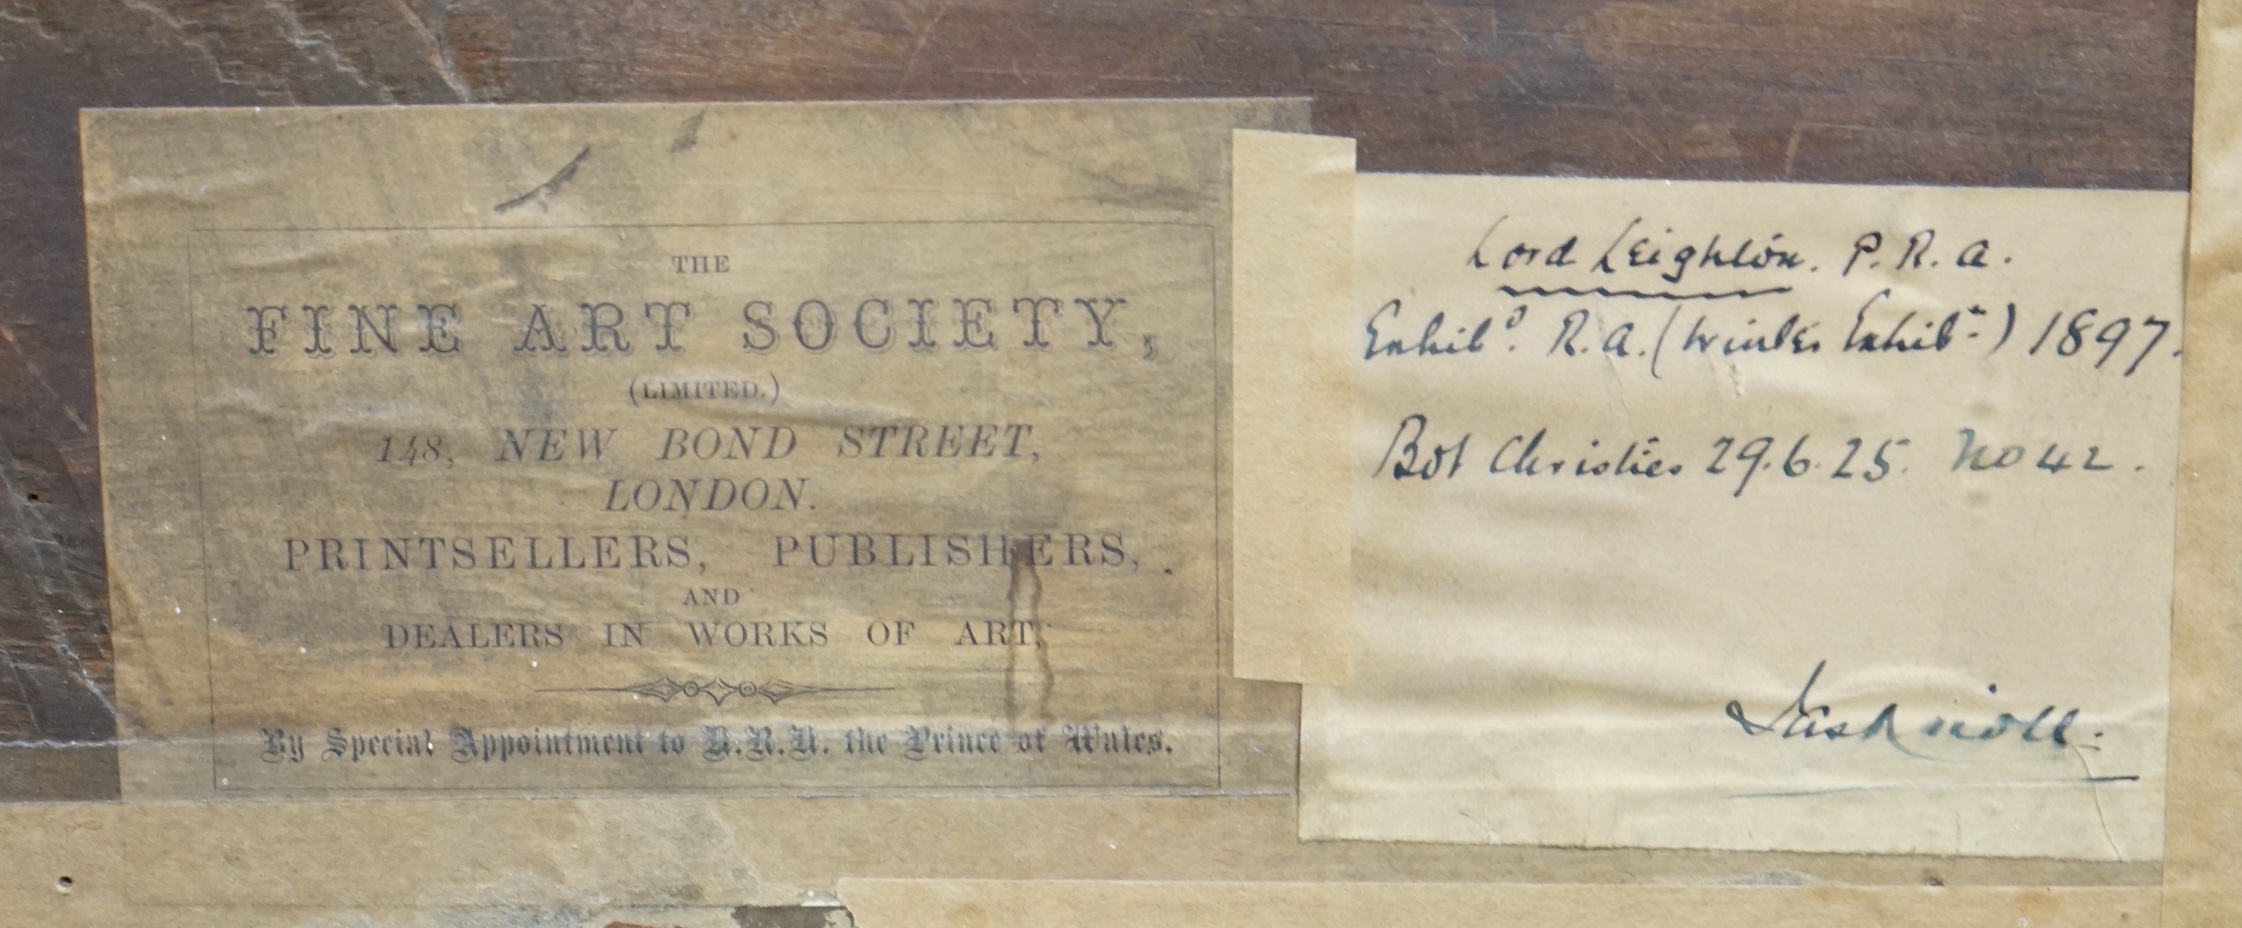 THE
FINE ART SOCIETY,
(LIMITED.)
148, NEW BOND STREET,
LONDON.
PRINTSELLERS, PUBLISHERS,
AND
DEALERS IN WORKS OF ART,
By Special Appointment to H.R.H. the Prince of Wales.
Lord Leighton. P.R.A.
Exhibᵈ. R.A. (Winter Exhibⁿ) 1897.
Bot Christies 29.6.25. No 42.